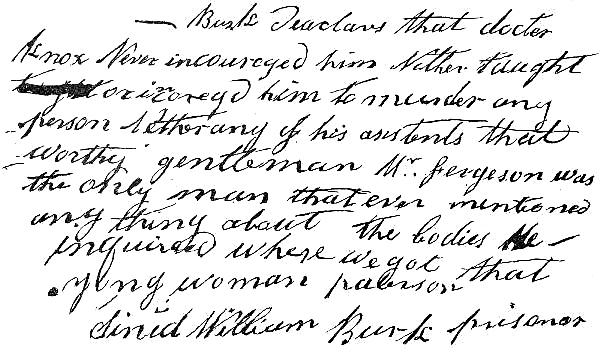 — Burk deaclars that docter
Knox Never incoureged him Nither taught
or incoregd him to murder any
person Nether any of his asistents that
worthy gentleman Mr. fergeson was
the only man that ever mentioned
any thing about the bodies He
inquired where we got that
yong woman paterson
Sined William Burk prisoner